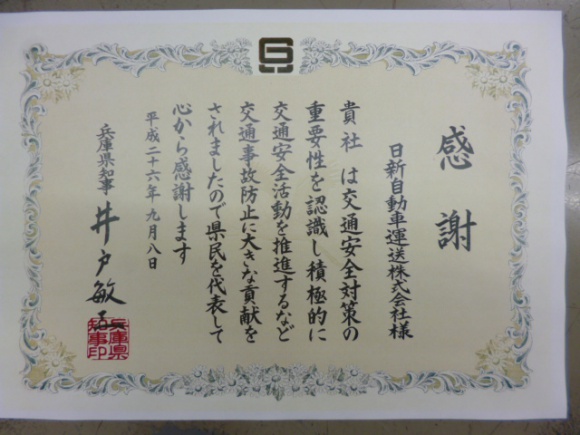 感謝
日新自動車運送株式会社様
貴社は交通安全対策の
重要性を認識し積極的に
交通安全活動を推進するなど
交通事故防止に大きな貢献を
されましたので県民を代表して
心から感謝します
平成二十六年九月八日
兵庫県知事 井戸敏三
兵庫県
知事印